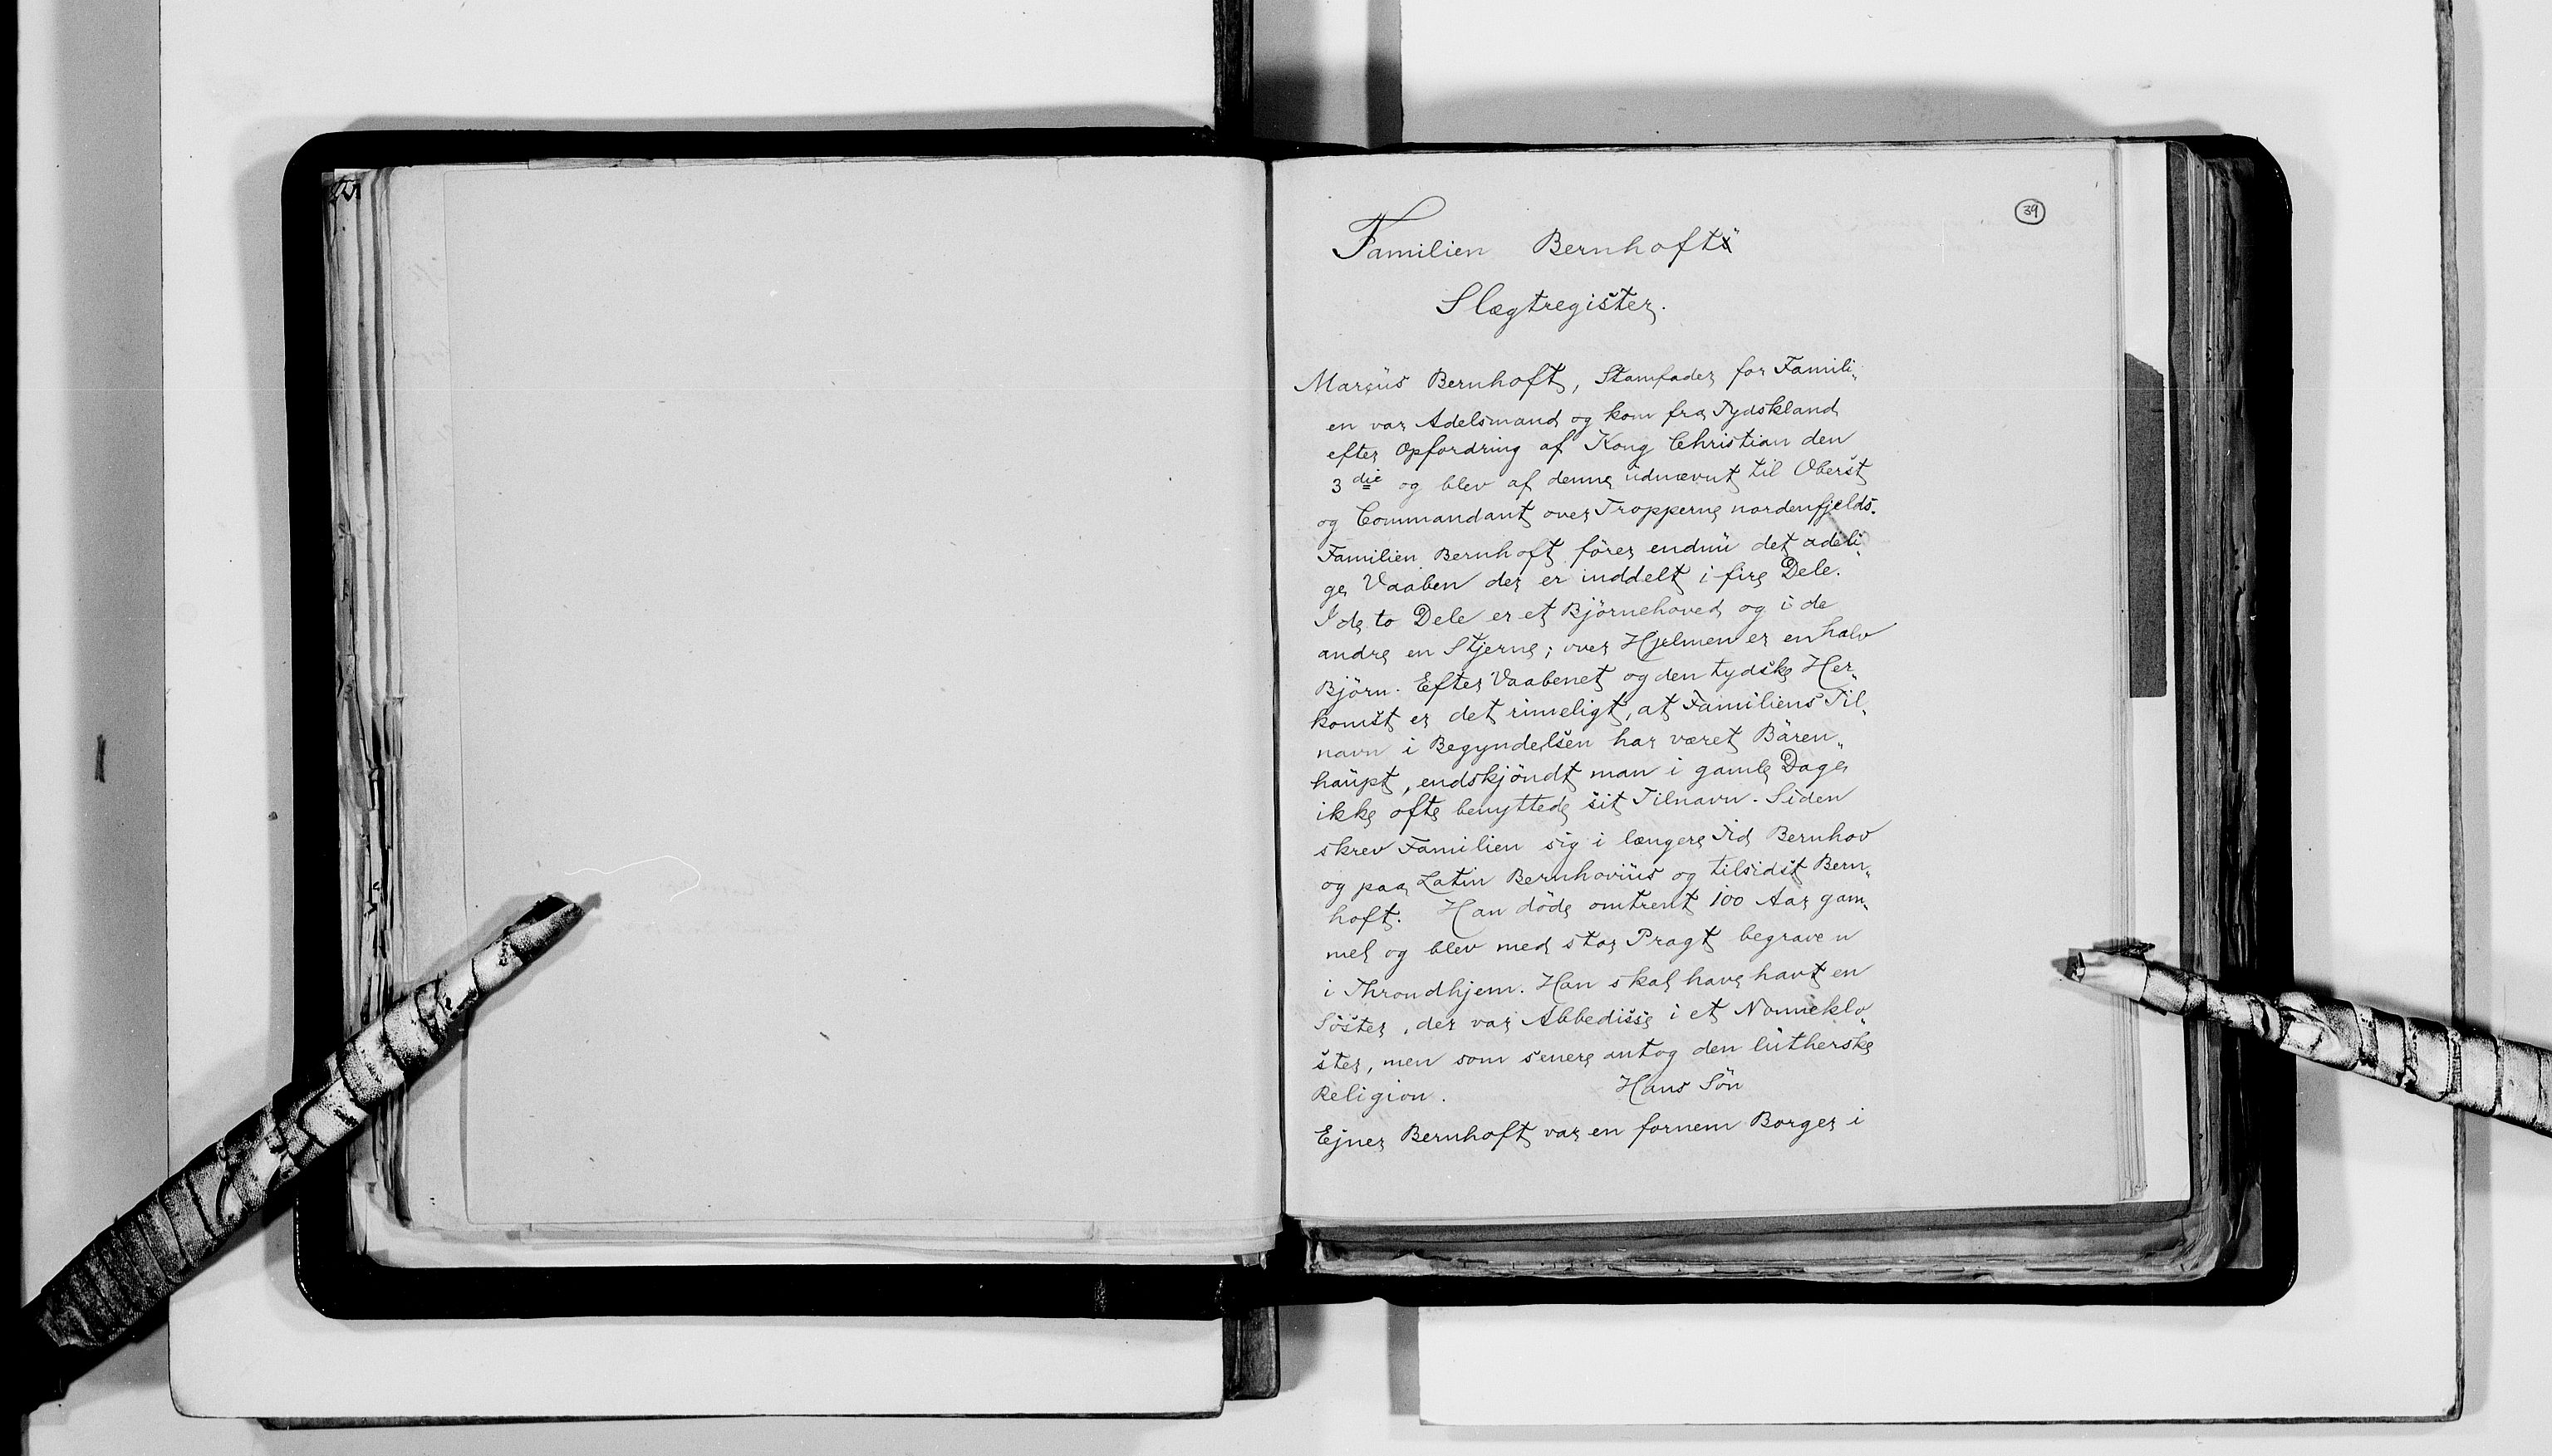 39
Familien Bernhofts
Slægtregister.
Marcus Bernhoft, Stamfader for Famili„
en var Adelsmand og kom fra Tydskland
efter Opfordring af Kong Christian den
3die og blev af denne udnævnt til Oberst
og Commandant over Tropperne nordenfjelds.
Familien Bernhoft fører endnu det adeli„
ge Vaaben der er inddelt i fire Dele.
I de to Dele er et Bjørnehoved og i de
andre en Stjerne; over Hjelmen er en halv
Bjørn. Efter Vaabenet og den tydske Her„
komst er det rimeligt, at Familiens Til„
navn i Begyndelsen har været Bären„
haupt, endskjøndt man i gamle Dage
ikke ofte benyttede sit Tilnavn. Siden
skrev Familien sig i længere Tid Bernhov
og paa Latin Bernhovius og tilsidst Bern„
hoft. Han døde omtrent 100 Aar gam„
mel og blev med stor Pragt begraven
i Throndhjem. Han skal have havt en
Søster, der var Abbedisse i et Nonneklo„
ster, men som senere antog den lutherske
Religion. Hans Søn
Ejner Bernhoft var en fornem Borger i